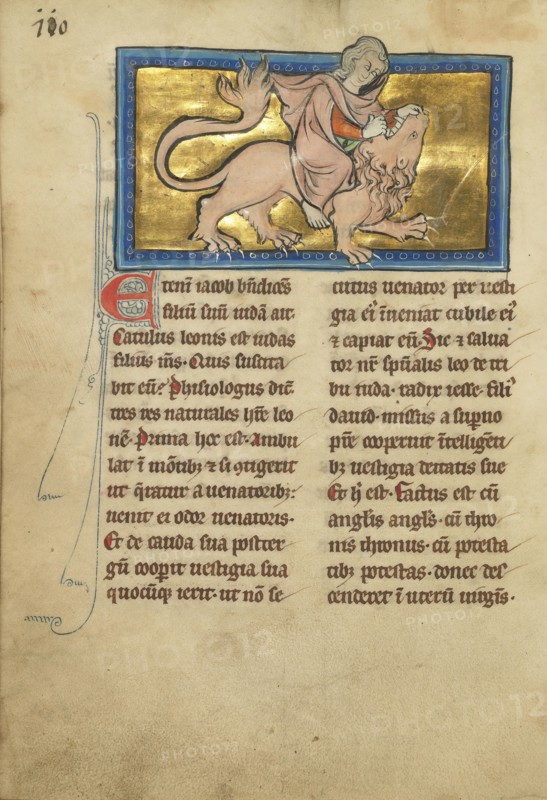 110
Eteni iacob bn̄dicēs
filiū suū iudā ait.
Catulus leonis est iudas
filius m̄s. Quis suscita
bit eū? Phisiologus dic̄.
tres res naturales hr̄e leo
nē. Prima hec est. Ambu
lat ī mōtibꝫ ⁊ si ꝯtigerit
ut q̄ratur a uenatoribꝫ:
uenit ei odor uenatoris.
Et de cauda sua postter
gū coopit uestigia sua
quocūqꝫ ierit. ut nō se
cutus uenator per uesti
gia ei ̓īueniat cubile ei ̓
⁊ capiat eū. Sic ⁊ salua
tor nr̄ sp̄ualis leo de tri
bu iuda. radix iesse. fili ̓
dauid. missus a sup̄no
pr̄e cooperuit ītelligēti
bꝫ uestigia deitatis sue
Et h̄ est. Factus est cū
angl̄is angl̄s. cū thro
nis thronus. cū potesta
tibꝫ potestas. donec des
cenderet ī uterū uirgīs.
PHOTO12